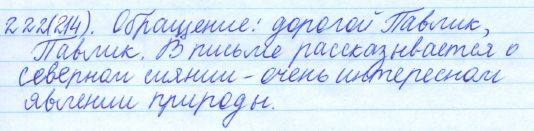 222(214). Обращение: дорогой Павлик,
Павлик. В письме рассказывается о
северном сиянии - очень интересном
явлении природы.